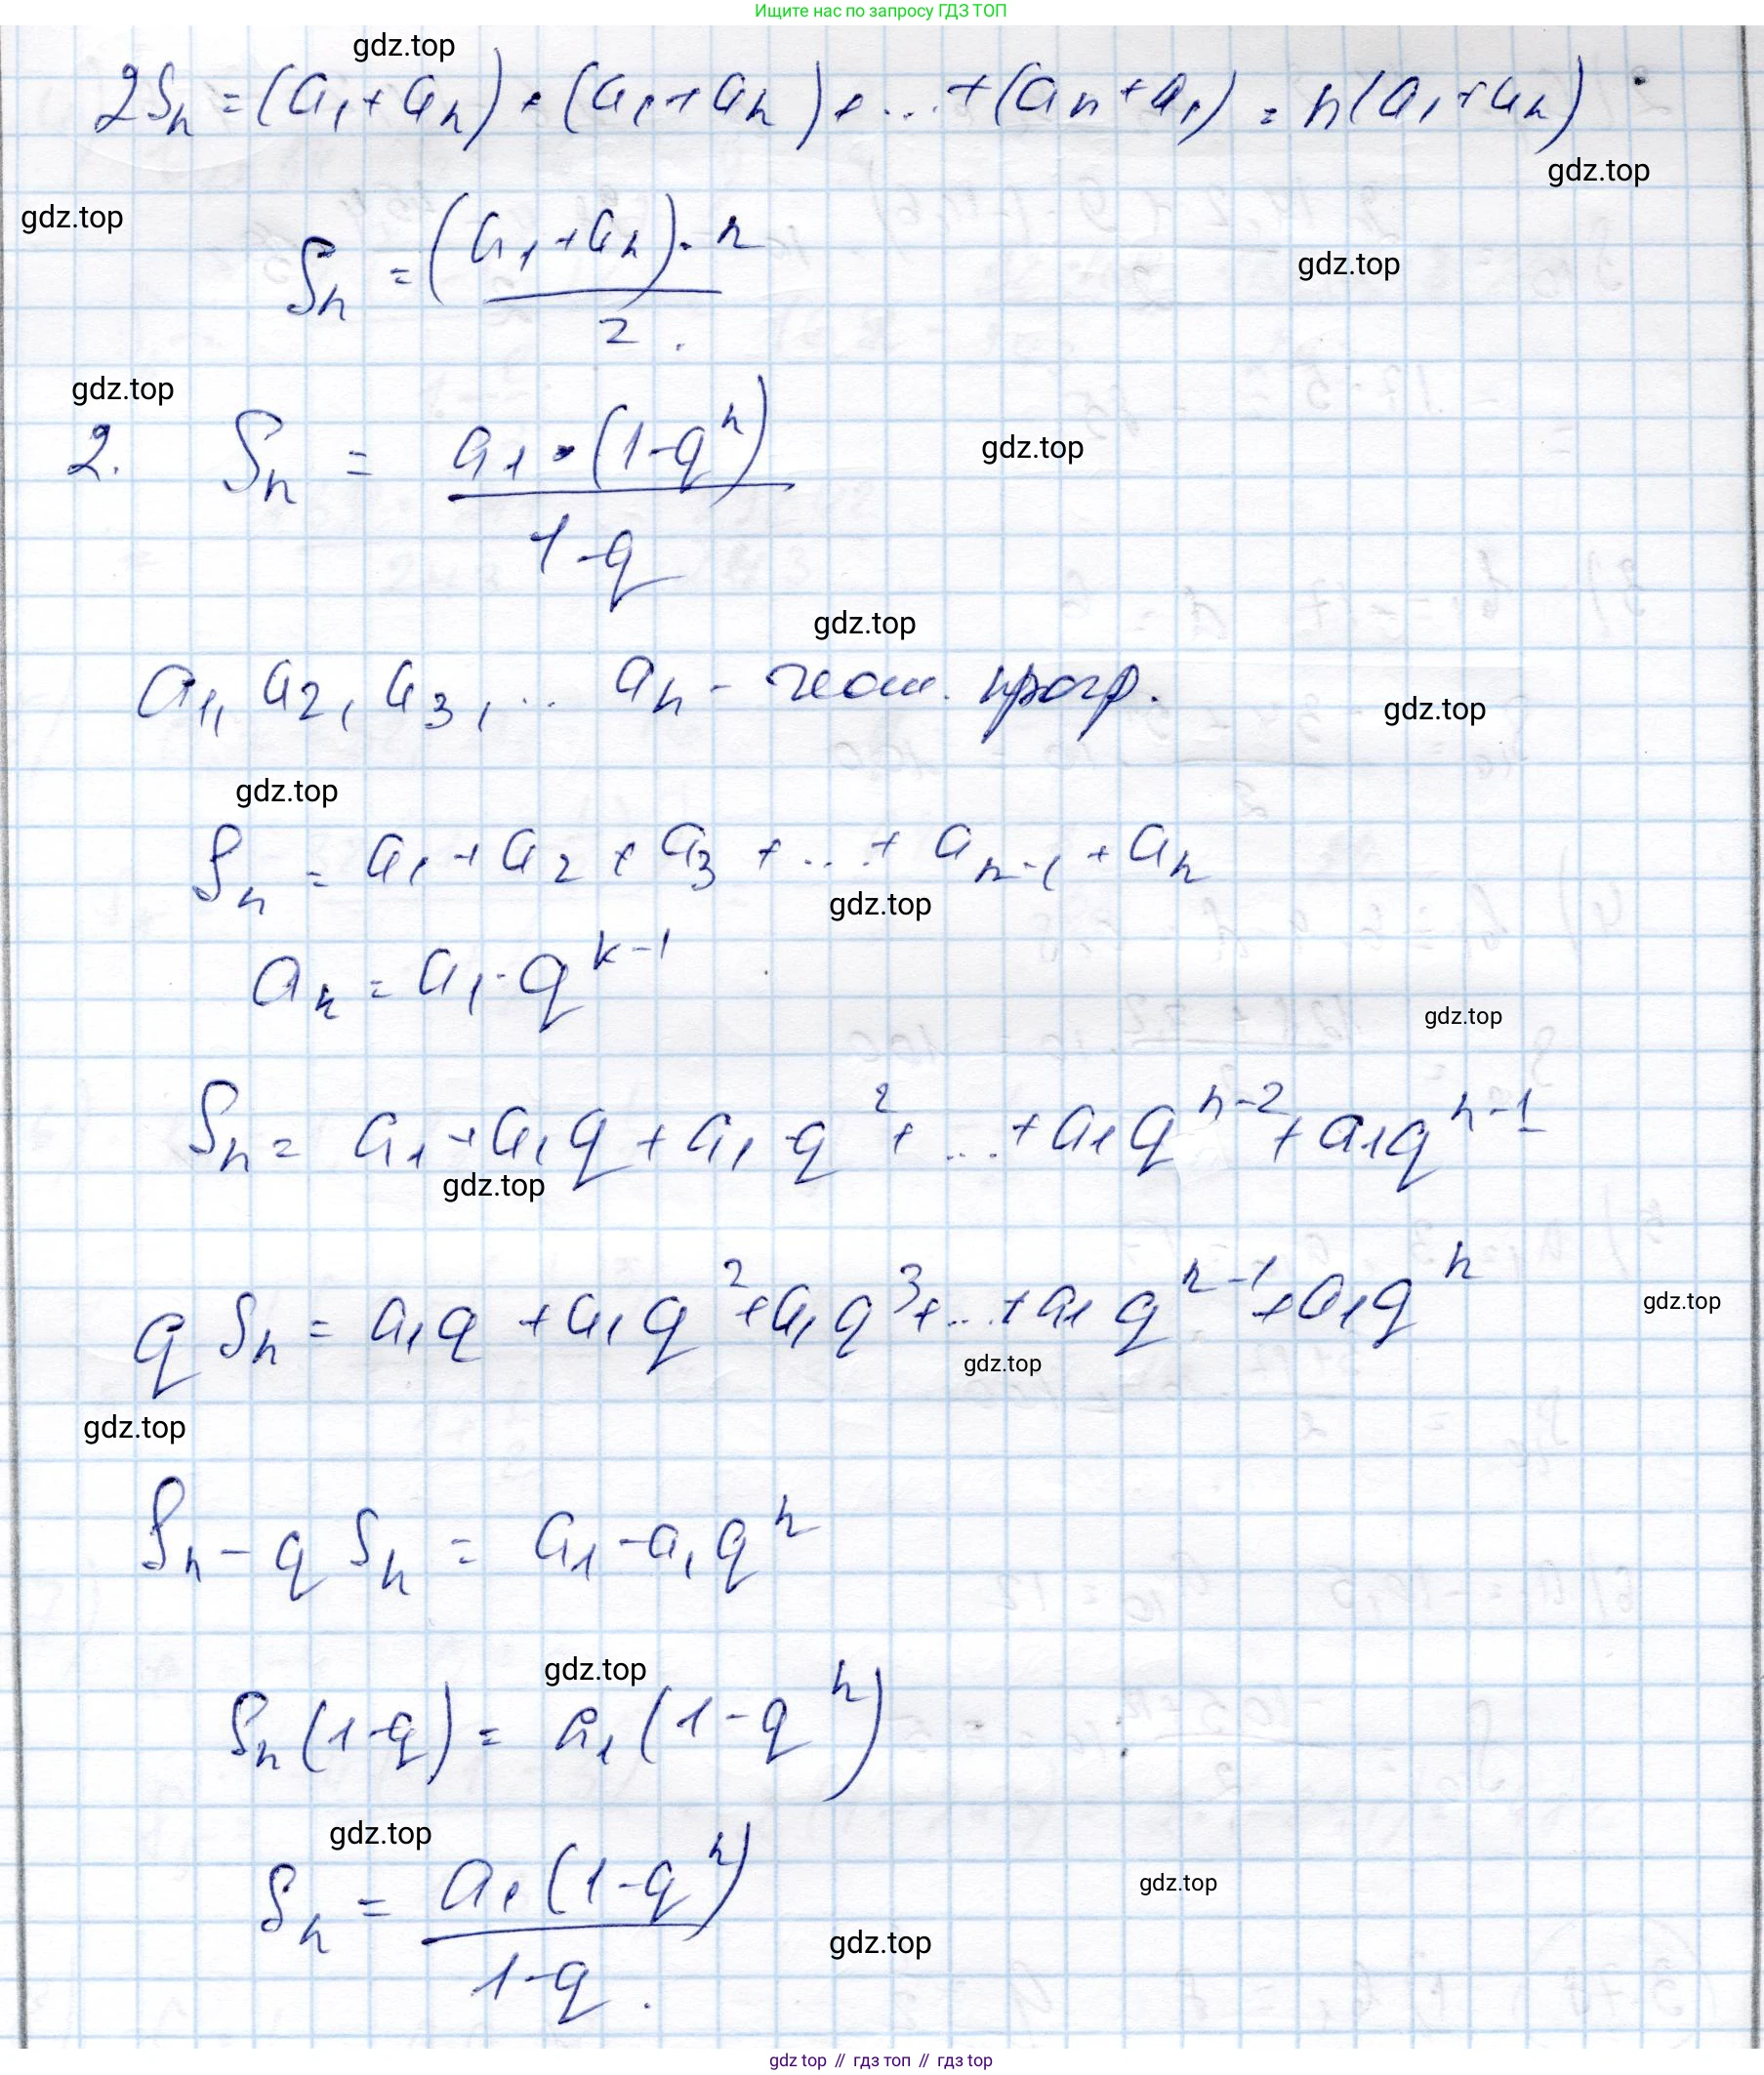 Ищите нас по запросу ГДЗ ТОП
gdz.top
2Sₙ = (a₁ + aₙ) + (a₁ + aₙ) + ... + (aₙ + a₁) = n(a₁ + aₙ)
gdz.top
gdz.top
Sₙ = (a₁ + aₙ) · n / 2.
gdz.top
gdz.top
2. Sₙ = a₁ · (1 - qⁿ) / 1 - q
gdz.top
gdz.top
a₁, a₂, a₃, ... aₙ - геом. прогр.
gdz.top
gdz.top
Sₙ = a₁ + a₂ + a₃ + ... + aₙ₋₁ + aₙ
gdz.top
aₖ = a₁ · qᵏ⁻¹
gdz.top
Sₙ = a₁ + a₁q + a₁ · q² + ... + a₁qⁿ⁻² + a₁qⁿ⁻¹
gdz.top
qSₙ = a₁q + a₁q² + a₁q³ + ... + a₁qⁿ⁻¹ + a₁qⁿ
gdz.top
gdz.top
gdz.top
Sₙ - qSₙ = a₁ - a₁qⁿ
gdz.top
Sₙ(1 - q) = a₁(1 - qⁿ)
gdz.top
Sₙ = a₁(1 - qⁿ) / 1 - q.
gdz.top
gdz.top
gdz top // гдз топ // гдз top